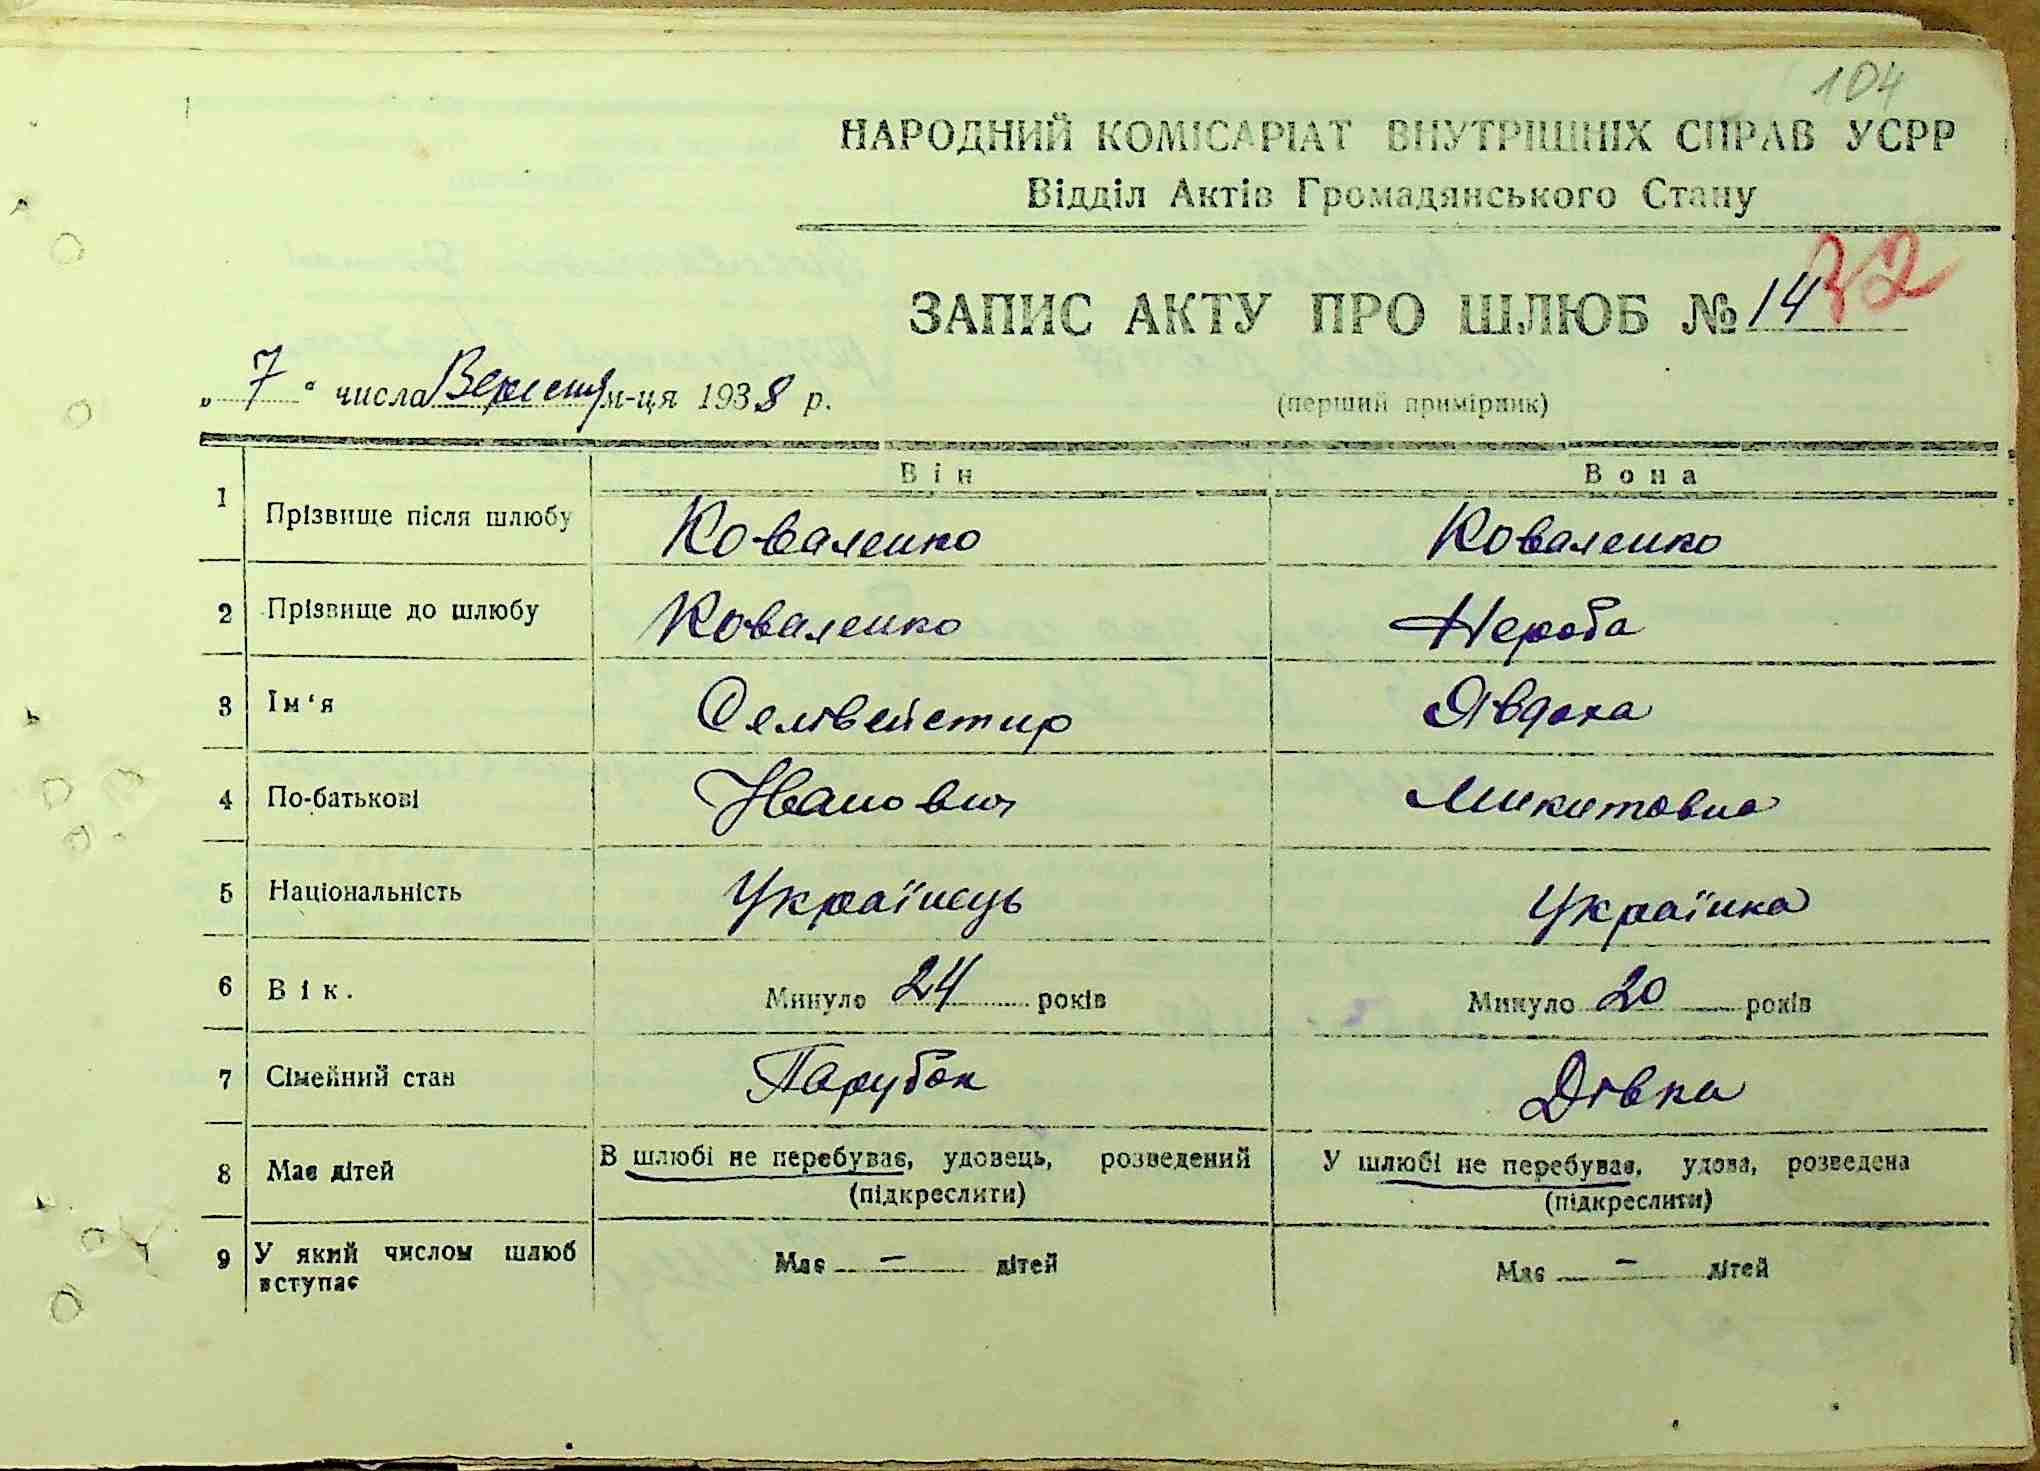 104
НАРОДНИЙ КОМІСАРІАТ ВНУТРІШНІХ СПРАВ УСРР
Відділ Актів Громадянського Стану
ЗАПИС АКТУ ПРО ШЛЮБ № 14 32
„ 7 “ числа Вересня м-ця 1938 р.
(перший примірник)
Він Вона
1 Прізвище після шлюбу Коваленко Коваленко
2 Прізвище до шлюбу Коваленко Нероба
3 Ім‘я Селівейстир Явдоха
4 По-батькові Иванович Микитовна
5 Національність Українець Українка
6 Вік. Минуло 24 років Минуло 20 років
7 Сімейний стан Парубок Дівка
8 Має дітей В шлюбі не перебуває, удовець, розведений У шлюбі не перебуває, удова, розведена
(підкреслити) (підкреслити)
9 У який числом шлюб Має – дітей Має – дітей
вступає